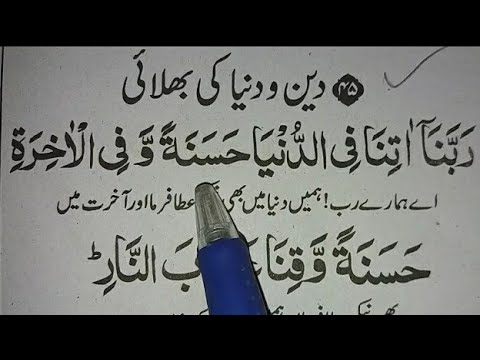 ۴۵ دین و دنیا کی بھلائی
رَبَّنَآ اٰتِنَا فِی الدُّنْیَا حَسَنَةً وَّ فِی الْاٰخِرَةِ
اے ہمارے رب! ہمیں دنیا میں بھی عطا فرما اور آخرت میں
حَسَنَةً وَّ قِنَا بَ النَّارِ